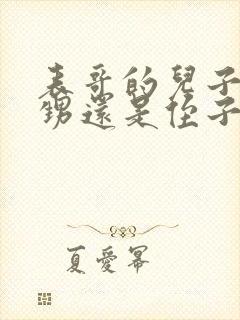 表哥的兒子
甥還是侄子
夏愛冪